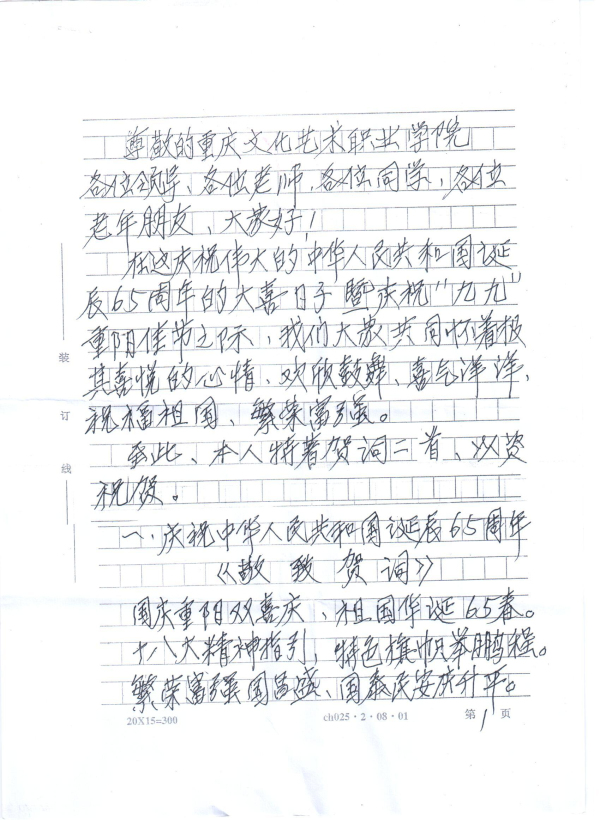 尊敬的重庆文化艺术职业学院
各位领导、各位老师、各位同学、各位
老年朋友、大家好！
在这庆祝伟大的中华人民共和国诞
辰65周年的大喜日子暨庆祝“九九”
重阳佳节之际，我们大家共同怀着极
其喜悦的心情、欢欣鼓舞、喜气洋洋，
祝福祖国、繁荣富强。
至此、本人特著贺词二首、以资
祝贺。
一、庆祝中华人民共和国诞辰65周年
《敬致贺词》
国庆重阳双喜庆、祖国华诞65春。
十八大精神指引，特色旗帜举鹏程。
繁荣富强国昌盛、国泰民安庆升平。
装
订
线
20X15=300 ch025·2·08·01 第1页